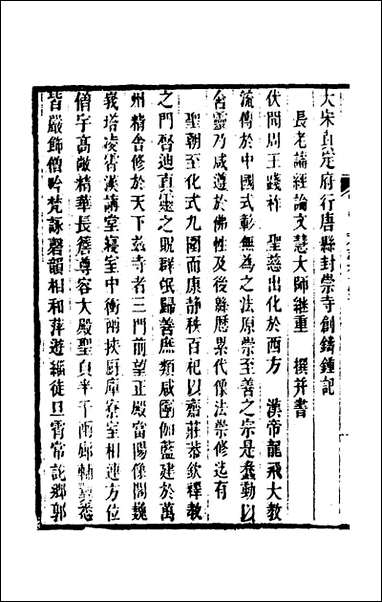 大宋真定府行唐縣封崇寺創鑄鐘記
長老講經論文慧大師繼重 撰并書
伏聞周王踐祚 聖慈出化於西方 漢帝龍飛大教
流傳於中國式彰無為之法原崇至善之宗是蠢動以
含靈乃咸遵於佛性及後歷累代像法崇修迄有
聖朝至化式九圍而康靜秩百祀以齋莊恭欽釋教
之門督迪真之眾群氓歸善庶類咸伽藍建於萬
州精舍修於天下茲寺者三門前望正殿當陽像閣巍
峩塔凌霄漢講堂寢室中衝兩挾厨庫寮室相連方位
僧宇高敞精華長簷尊容大殿聖真半千兩廊悉
皆嚴飾僧吟梵詠磬韻相和萍遊緇徒旦霄常詑鄉郭